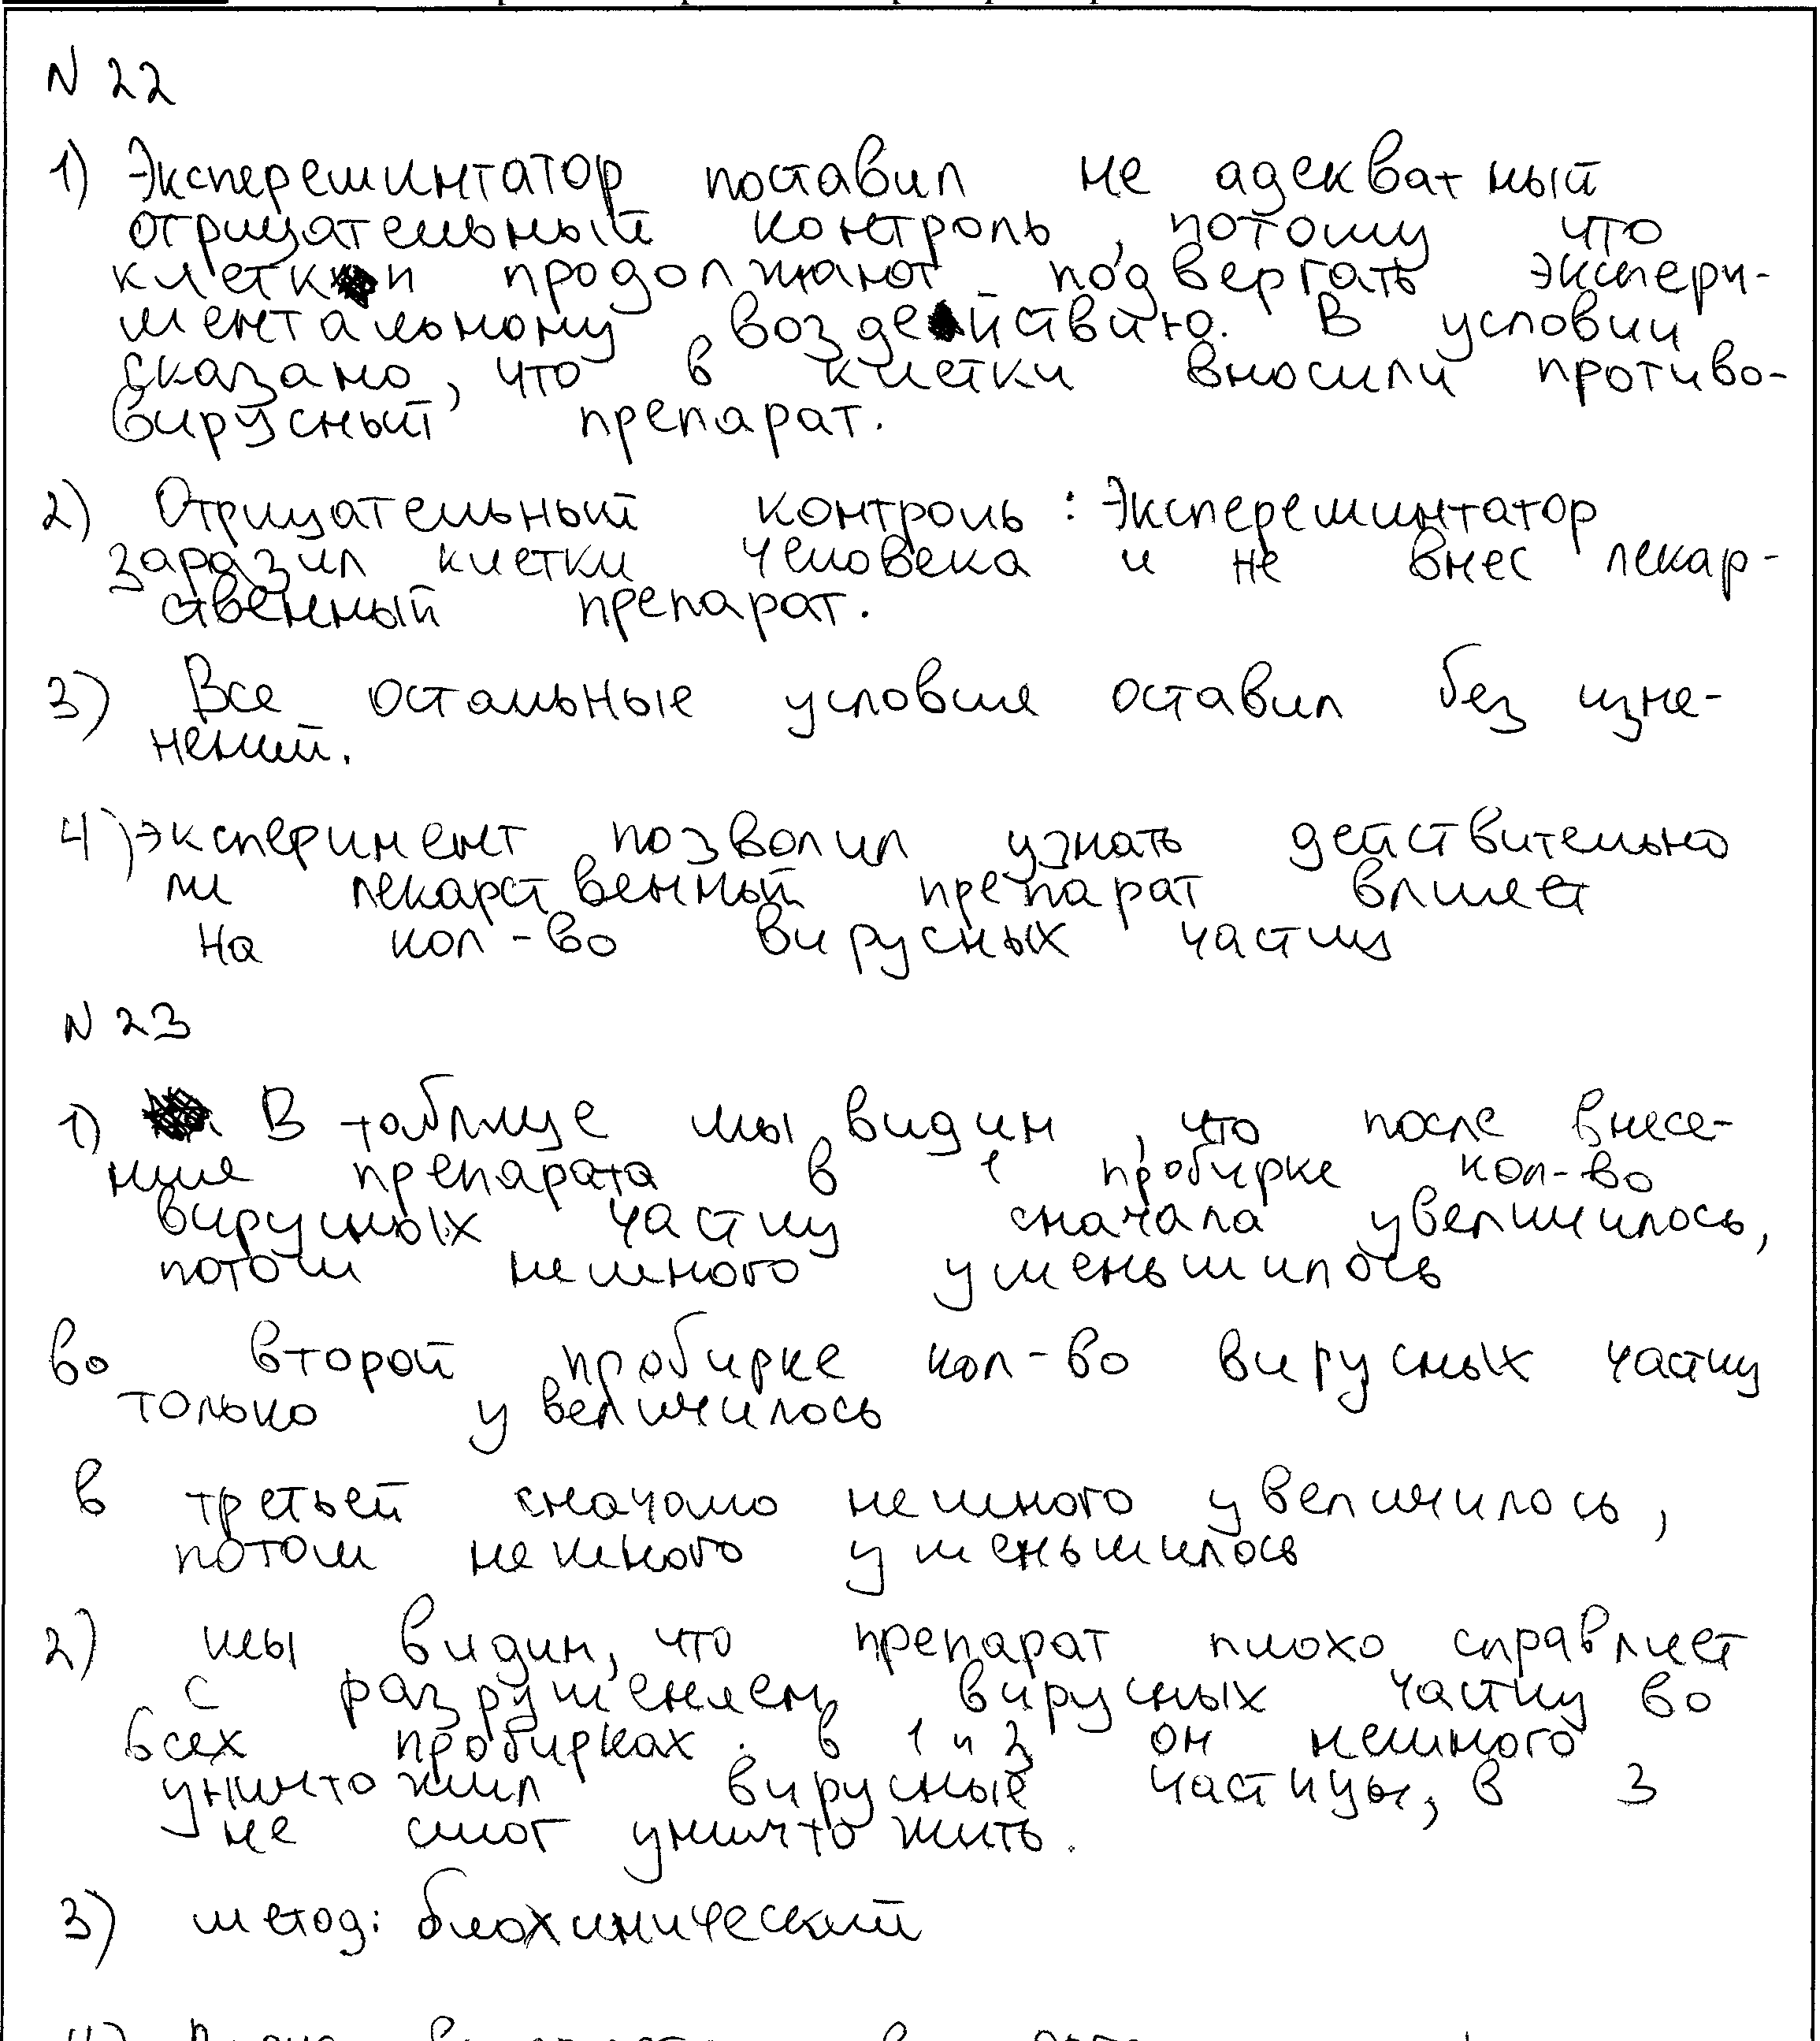 N 22
1) Эксперешинтатор поставил не адекватный
отрицательный контроль, потому что
клетки продолжают подвергать экспери-
ментальному воздействию. В условии
сказано, что в клетки вносили противо-
вирусный препарат.
2) Отрицательный контроль: Экспереминтатор
заразил клетки человека и не внес лекар-
ственный препарат.
3) Все остальные условия оставил без изме-
нений.
4) эксперимент позволил узнать действительно
ли лекарственный препарат влияет
на кол-во вирусных частиц
N 23
1) В таблице мы видим, что после внесе-
ния препарата в 1 пробирке кол-во
вирусных частиц сначала увеличилось,
потом немного уменьшилось
во второй пробирке кол-во вирусных частиц
только увеличилось
в третьей сначало немного увеличилось,
потом немного уменьшилось
2) мы видим, что препарат плохо справляет
с разрушеняем вирусных частиц во
всех пробирках. в 1 и 2 он немного
уничтожил вирусные частицы, в 3
не смог уничтожить.
3) метод: биохимический